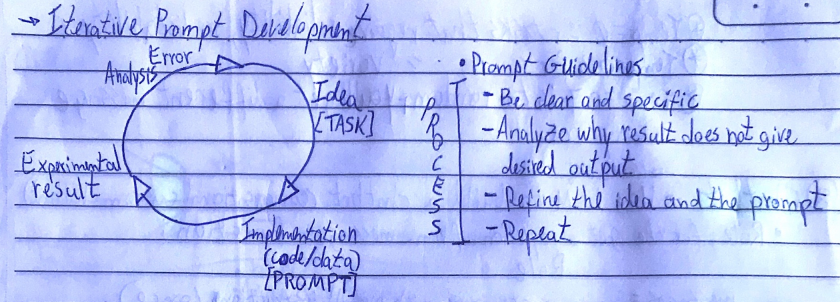 → Iterative Prompt Development
Error
Analysis
Idea
[TASK]
Experimental
result
Implementation
(code/data)
[PROMPT]
• Prompt Guidelines
PROCESS
- Be clear and specific
- Analyze why result does not give
desired output
- Refine the idea and the prompt
- Repeat